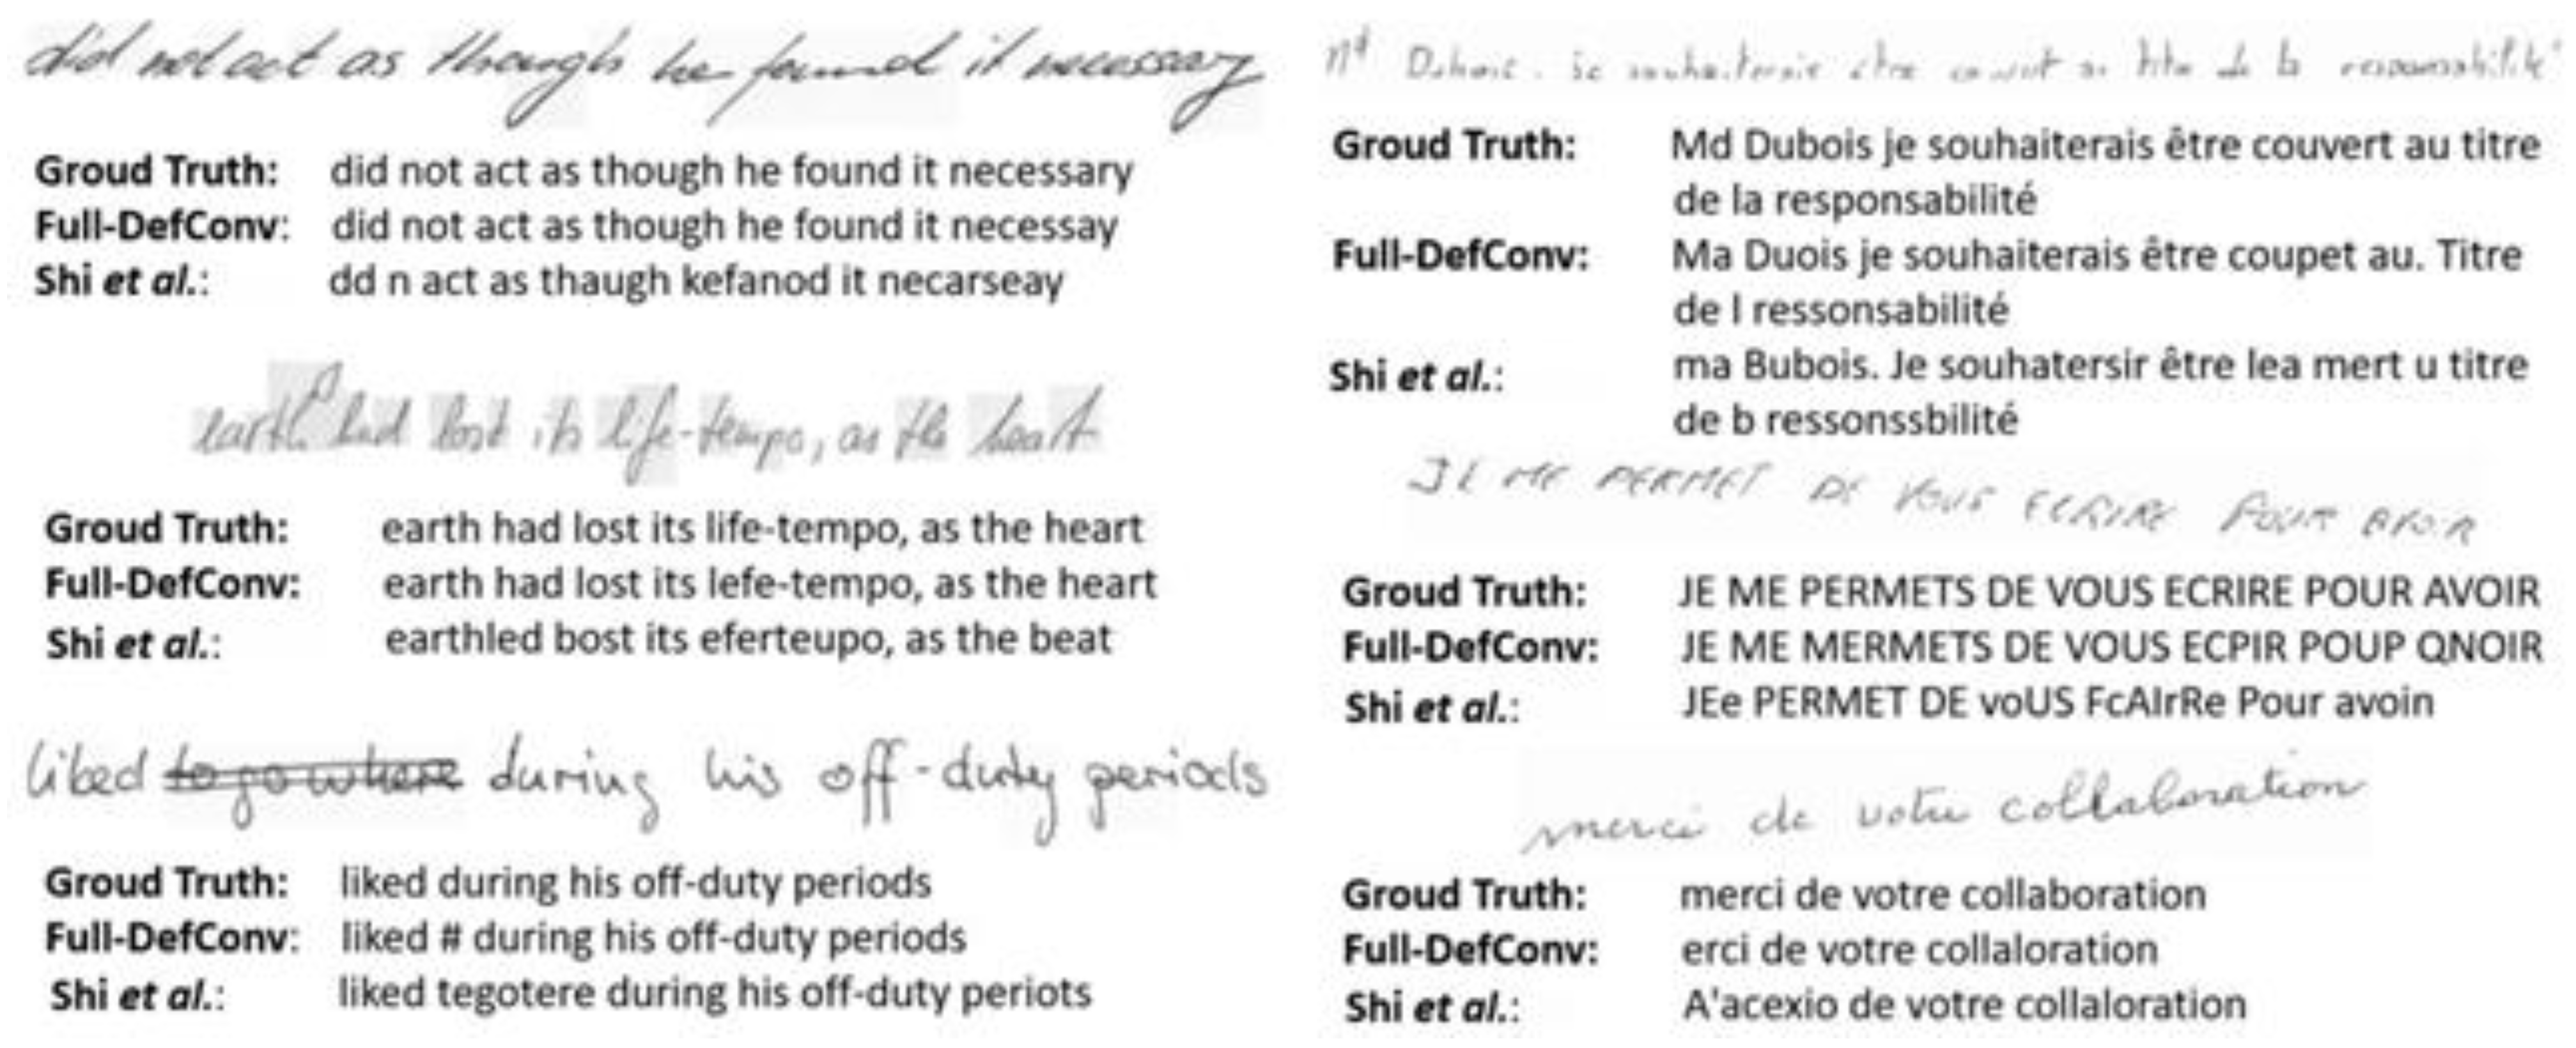 did not act as though he found it necessary
Groud Truth: did not act as though he found it necessary
Full-DefConv: did not act as though he found it necessay
Shi et al.: dd n act as thaugh kefanod it necarseay
earth had lost its life-tempo, as the heart
Groud Truth: earth had lost its life-tempo, as the heart
Full-DefConv: earth had lost its lefe-tempo, as the heart
Shi et al.: earthled bost its eferteupo, as the beat
liked to go where during his off-duty periods
Groud Truth: liked during his off-duty periods
Full-DefConv: liked # during his off-duty periods
Shi et al.: liked tegotere during his off-duty periots
Md Dubois je souhaiterais être couvert au titre de la responsabilité
Groud Truth: Md Dubois je souhaiterais être couvert au titre
de la responsabilité
Full-DefConv: Ma Duois je souhaiterais être coupet au. Titre
de l ressonsabilité
Shi et al.: ma Bubois. Je souhatersir être lea mert u titre
de b ressonssbilité
JE ME PERMET DE VOUS ECRIRE POUR AVOIR
Groud Truth: JE ME PERMETS DE VOUS ECRIRE POUR AVOIR
Full-DefConv: JE ME MERMETS DE VOUS ECPIR POUP QNOIR
Shi et al.: JEe PERMET DE voUS FcAIrRe Pour avoin
merci de votre collaboration
Groud Truth: merci de votre collaboration
Full-DefConv: erci de votre collaloration
Shi et al.: A'acexio de votre collaloration